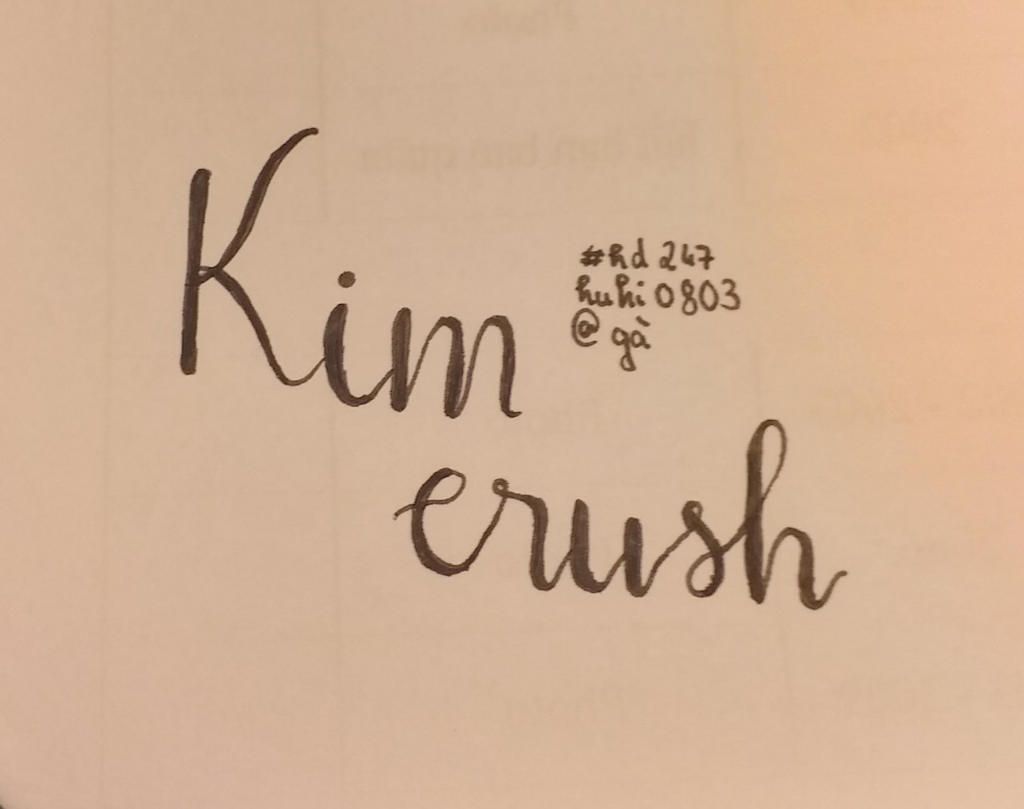 Kim
#hd 247
huhi 0803
@ gà
crush